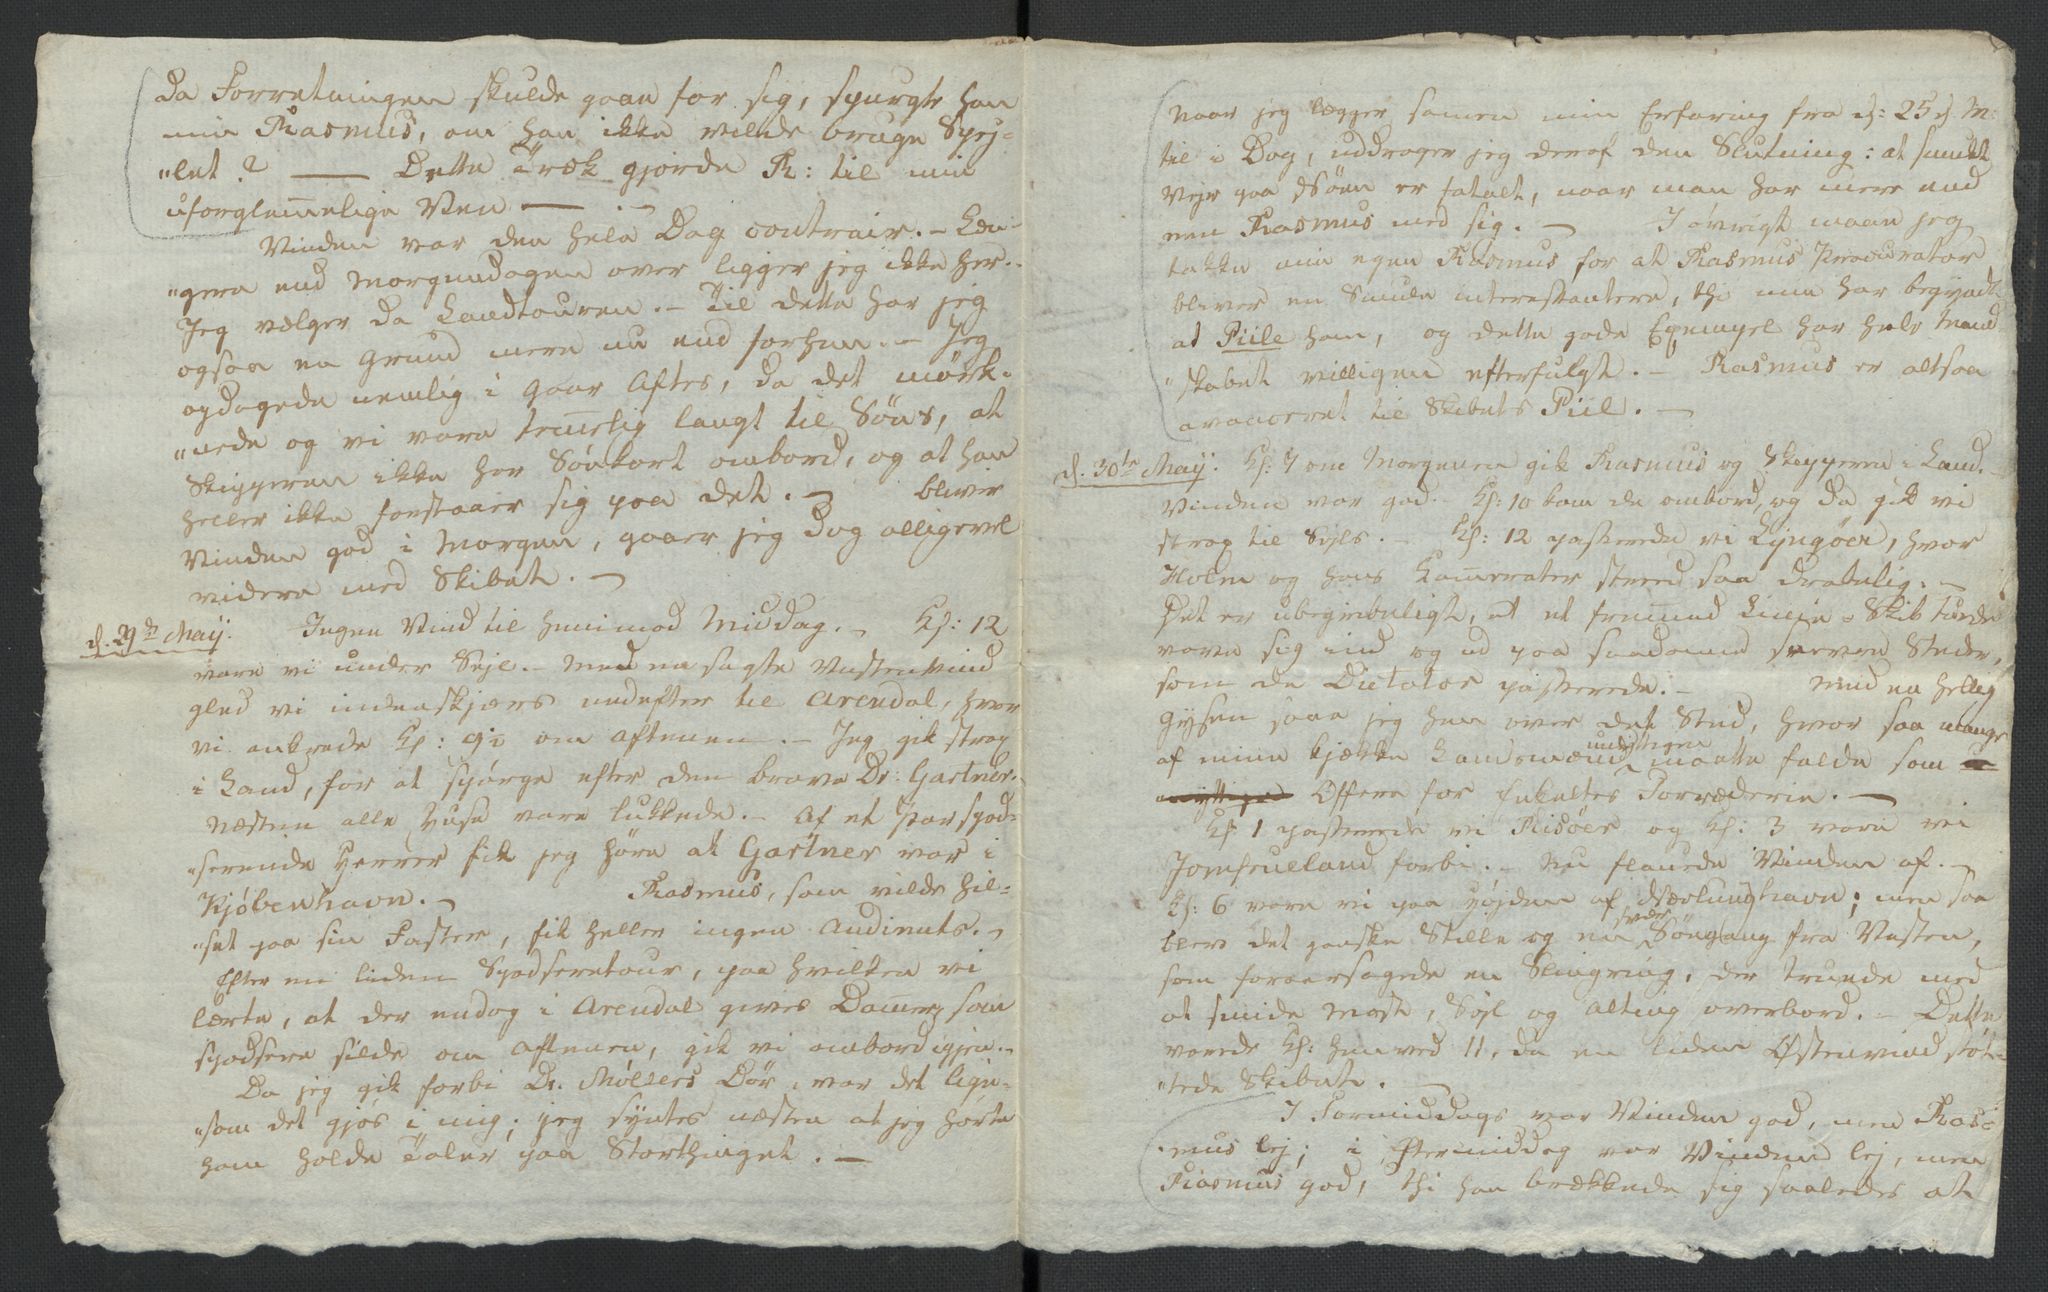 Da Forretningen skulde gaae for sig, spurgte han
min Rasmus, om han ikke vilde bruge Spej-
"let? — Dette Træk gjorde R: til min
uforglem̅elige Ven — . —
Vinden var den hele Dag contrair. — Læn-
"gere end Morgendagen over ligger jeg ikke her. —
Jeg vælger da Landtouren. — Til dette har jeg
ogsaa en Grund mere nu end forhen. — Jeg
opdagede nemlig i Gaar Aftes, da det mörk-
"nede og vi vare tem̅elig langt til Söes, at
Skipperen ikke har Sökort ombord, og at han
heller ikke forstaaer sig paa det. — bliver
Vinden god i Morgen, gaaer jeg dog alligevel
videre med Skibet. —
d. 29de May. Ingen Vind til henimod Middag. — Kl: 12
vare vi under Sejl. — Med en sagte Vestenvind
gled vi indenskjærs nedefter til Arendal, hvor
vi ankrede Kl: 9½ om Aftenen. — Jeg gik strax
i Land, for at spörge efter den brave Dr: Gartner.
Næsten alle Huse vare lukkede. — Af et Par spad-
"serende Herrer fik jeg höre at Gartner var i
Kjöbenhavn. — Rasmus, som vilde hil-
"set paa sin Faster, fik heller ingen Audients. —
Efter en liden Spadseretour, paa hvilken vi
lærte, at der endog i Arendal gives Dam̅er, som
spadsere silde om Aftenen, gik vi ombord igjen. —
Da jeg gik forbi Dr. Möllers Dör, var det lige-
"som det gjös i mig; jeg syntes næsten at jeg hörte
ham holde Taler paa Storthinget. —
Naar jeg lægger samen min Erfaring fra d: 25 d. M:
til i Dag, uddrager jeg deraf den Slutning: at smukt
Vejr paa Söen er fatalt, naar man har mere end
een Rasmus med sig. — I övrigt maae jeg
takke min egen Rasmus for at Rasmus Procurator
bliver en Smule interessantere, thi nu har begyndt
at Piile ham, og dette gode Exempel har hele Mand-
"skabet villigen efterfulgt. — Rasmus er altsaa
avanceret til Skibets Piil. —
d. 30te May. Kl: 7 om Morgenen gik Rasmus og Skipperen i Land.
Vinden var god. — Kl: 10 kom de ombord, og da gik vi
strax til Sejls. — Kl: 12 passerede vi Lyngöer, hvor
Holm og hans Kam̅erater streed saa drabelig. —
Det er ubegribeligt, at et frem̅ed Linie-Skib turde
vove sig ind og ud paa saadanne snevre Steder,
som de Dictator passerede. — Med en hellig
Gysen saae jeg hen over det Sted, hvor saa mange
af mine kjække Landsmænd maatte falde som
Offere for Forræderie. —
Kl 1 passerede vi Risöer og Kl: 3 vare vi
Jomfrueland forbi. — Nu flauede Vinden af. —
Kl: 6 vare vi paa Höjden af Nævlunghavn; men saa
blev det ganske Stille og en svær Söegang fra Vesten,
som foraarsagede en Slingring, der truede med
at smide Mast, Sejl og Alting overbord. — Dette
varede Kl: henved 11, da en liden Østenvind støt-
"tede Skibet. —
I Formiddags var Vinden god, men Ras-
"mus lej; i Eftermiddag var Vinden lej, men
Rasmus god, thi han brækkede sig saaledes at